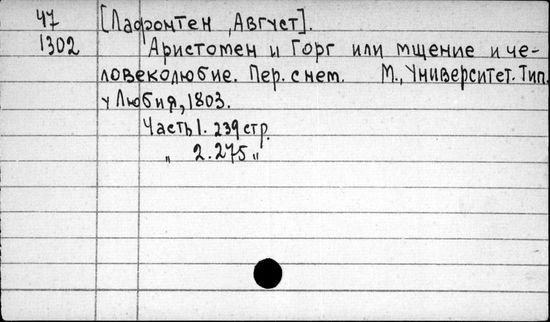 47 [Лафонтен, Август].
1302 Аристомен и Горг или мщение и че-
ловеколюбие. Пер. с нем. М., Университет. Тип.
у Любия, 1803.
Часть 1. 239 стр.
„ 2. 275 „